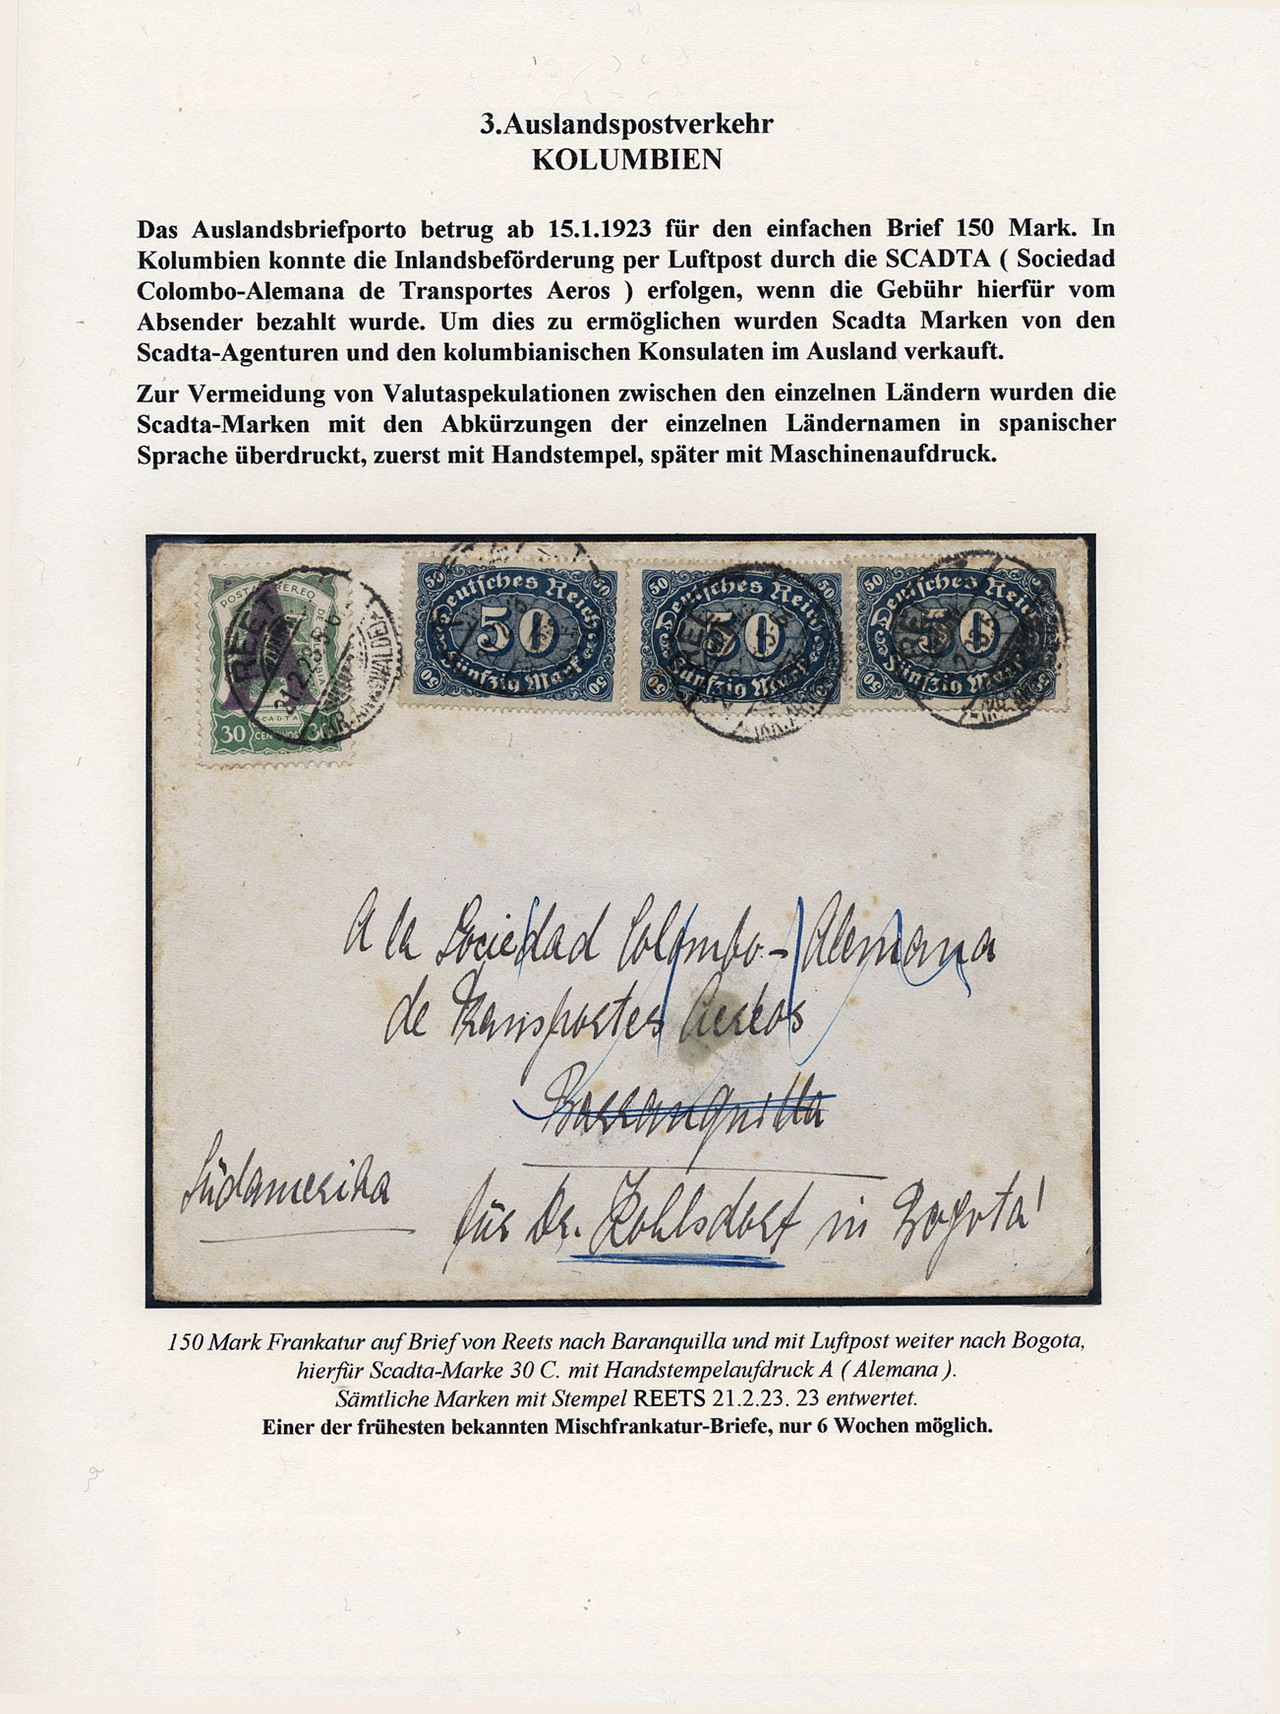 3.Auslandspostverkehr
KOLUMBIEN
Das Auslandsbriefporto betrug ab 15.1.1923 für den einfachen Brief 150 Mark. In
Kolumbien konnte die Inlandsbeförderung per Luftpost durch die SCADTA ( Sociedad
Colombo-Alemana de Transportes Aeros ) erfolgen, wenn die Gebühr hierfür vom
Absender bezahlt wurde. Um dies zu ermöglichen wurden Scadta Marken von den
Scadta-Agenturen und den kolumbianischen Konsulaten im Ausland verkauft.
Zur Vermeidung von Valutaspekulationen zwischen den einzelnen Ländern wurden die
Scadta-Marken mit den Abkürzungen der einzelnen Ländernamen in spanischer
Sprache überdruckt, zuerst mit Handstempel, später mit Maschinenaufdruck.
SCADTA
30 CENTAVOS 30
50 Deutsches Reich 50
50
50 Fünfzig Mark 50
50 Deutsches Reich 50
50
50 Fünfzig Mark 50
50 Deutsches Reich
50
50 Fünfzig Mark
A la Sociedad Colombo-Alemana
de Transportes Aereos
Barranquilla
Südamerika
für Dr. Kohlsdorf in Bogota!
150 Mark Frankatur auf Brief von Reets nach Baranquilla und mit Luftpost weiter nach Bogota,
hierfür Scadta-Marke 30 C. mit Handstempelaufdruck A ( Alemana ).
Sämtliche Marken mit Stempel REETS 21.2.23. 23 entwertet.
Einer der frühesten bekannten Mischfrankatur-Briefe, nur 6 Wochen möglich.